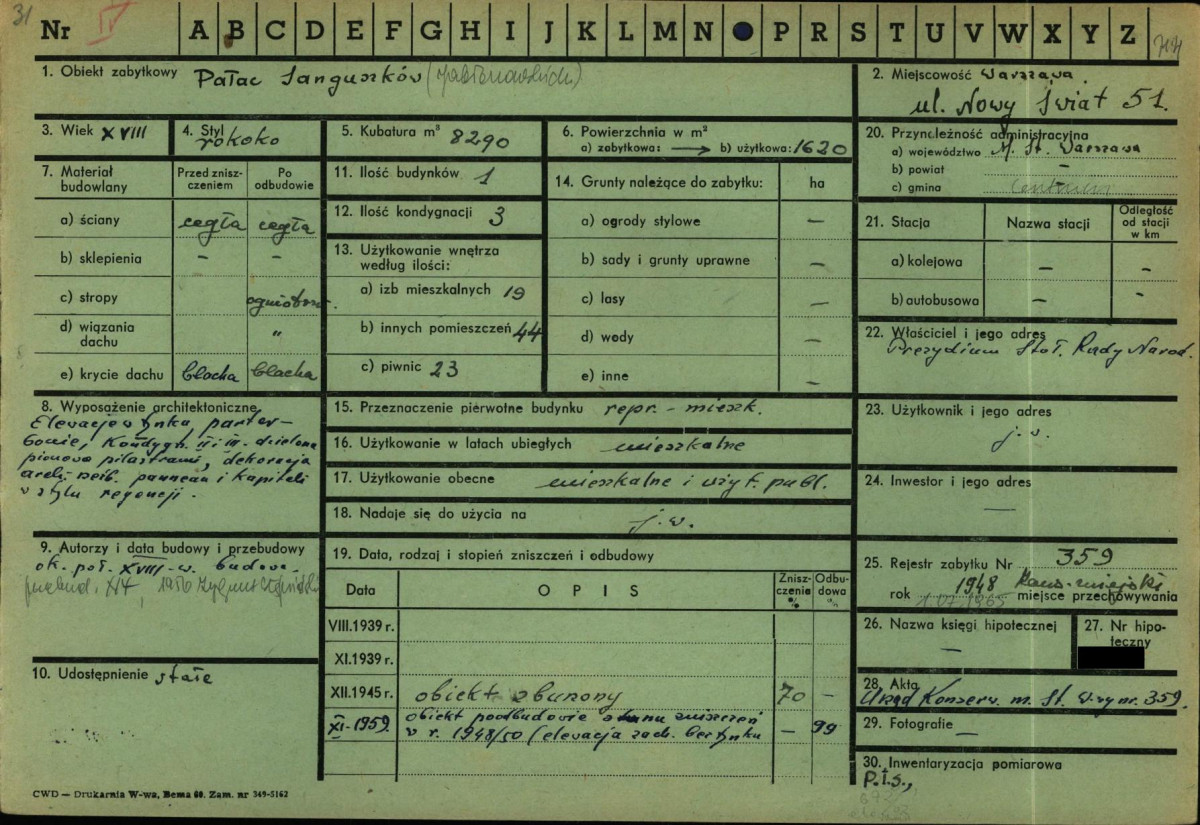 31
Nr IV A B C D E F G H I J K L M N P R S T U V W X Y Z
1. Obiekt zabytkowy Pałac Sanguszków (Jabłonowskich)
2. Miejscowość Warszawa
ul. Nowy Świat 51.
3. Wiek XVIII
4. Styl rokoko
5. Kubatura m³ 8290
6. Powierzchnia w m²
a) zabytkowa: → b) użytkowa: 1620
20. Przynależność administracyjna
a) województwo M. St. Warszawa
b) powiat –
c) gmina
7. Materiał budowlany
Przed zniszczeniem
Po odbudowie
a) ściany cegła cegła
b) sklepienia – –
c) stropy
d) wiązania dachu "
e) krycie dachu blacha blacha
11. Ilość budynków 1
12. Ilość kondygnacji 3
13. Użytkowanie wnętrza
według ilości:
a) izb mieszkalnych 19
b) innych pomieszczeń 44
c) piwnic 23
14. Grunty należące do zabytku: ha
a) ogrody stylowe –
b) sady i grunty uprawne –
c) lasy –
d) wody –
e) inne –
21. Stacja Nazwa stacji Odległość od stacji w km
a) kolejowa – –
b) autobusowa – –
22. Właściciel i jego adres
Prezydium Stoł. Rady Narod.
8. Wyposażenie architektoniczne
Elewacje z tynku, parter
kondygn. II i III dzielone
pionowo pilastrami, dekoracja
panneau i kapiteli
w stylu regencji.
15. Przeznaczenie pierwotne budynku repr. – mieszk.
16. Użytkowanie w latach ubiegłych mieszkalne
17. Użytkowanie obecne mieszkalne i użyt. publ.
18. Nadaje się do użycia na j. w.
23. Użytkownik i jego adres
j. w.
24. Inwestor i jego adres
—
9. Autorzy i data budowy i przebudowy
ok. poł. XVIII w. budowa.
przebud. 1950 Zygmunt
19. Data, rodzaj i stopień zniszczeń i odbudowy
Data OPIS Zniszczenie % Odbudowa %
VIII.1939 r.
XI.1939 r.
XII.1945 r. obiekt zburzony 70 –
XI-1959. obiekt
w r. 1948/50 (elewacja zach. bez tynku – 99
25. Rejestr zabytku Nr 359
rok 1948 miejsce przechowywania
1.07.1965
26. Nazwa księgi hipotecznej
–
27. Nr hipoteczny
10. Udostępnienie stałe
28. Akta
Urząd Konserw. m. St. W-wy nr. 359.
29. Fotografie –
30. Inwentaryzacja pomiarowa
P.I.S.,
CWD — Drukarnia W-wa, Bema 60. Zam. nr 349-5162